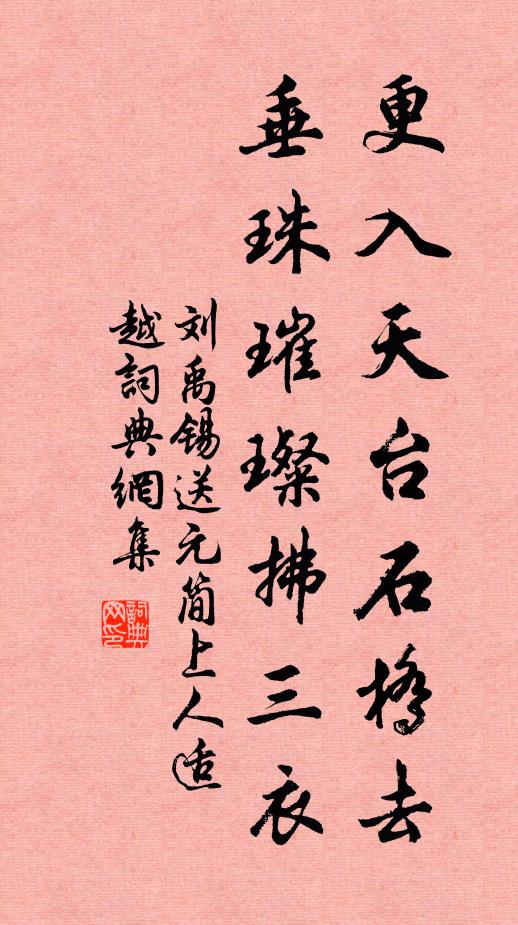 更入天台石橋去
垂珠璀璨拂三衣
刘禹锡送元简上人适
越詞典網集
詞典网印